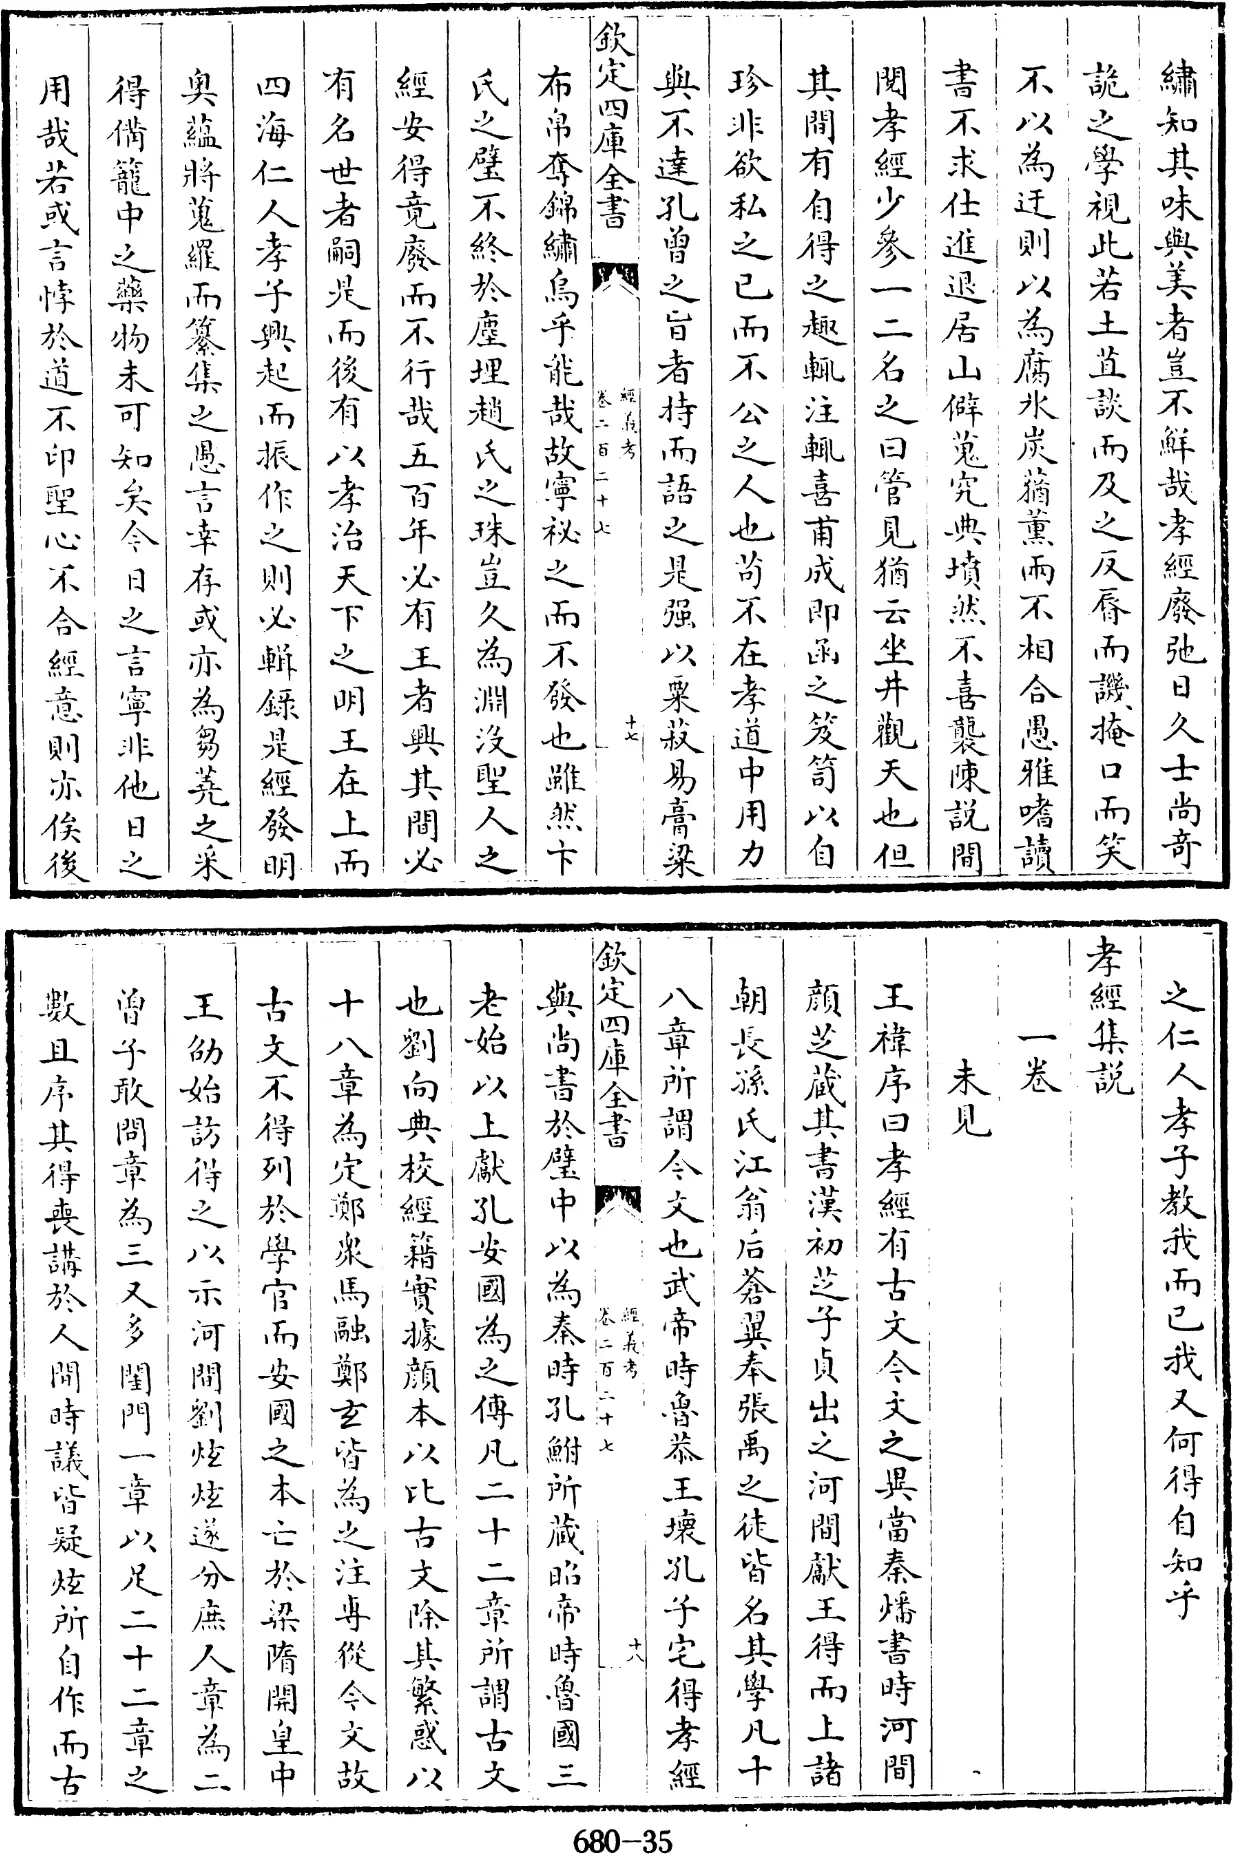 繡知其味與美者豈不鮮哉孝經廢弛日久士尚奇
詭之學視此若土苴談而及之反脣而譏掩口而笑
不以為迂則以為腐氷炭蕕薰兩不相合愚雅嗜讀
書不求仕進退居山僻蒐究典墳然不喜襲陳説間
閱孝經少參一二名之曰管見猶云坐井觀天也但
其間有自得之趣輒注輒喜甫成即函之笈笥以自
珍非欲私之已而不公之人也苟不在孝道中用力
與不達孔曾之旨者持而語之是强以粟菽易膏粱
欽定四庫全書
經義考
卷二百二十七
十七
布帛奪錦繡烏乎能哉故寧祕之而不發也雖然卞
氏之璧不終於塵埋趙氏之珠豈久為淵没聖人之
經安得竟廢而不行哉五百年必有王者興其間必
有名世者嗣是而後有以孝治天下之明王在上而
四海仁人孝子興起而振作之則必輯錄是經發明
奥藴將蒐羅而纂集之愚言幸存或亦為芻蕘之采
得備籠中之藥物未可知矣今日之言寧非他日之
用哉若或言悖於道不印聖心不合經意則亦俟後
之仁人孝子教我而已我又何得自知乎
孝經集説
一卷
未見
王禕序曰孝經有古文今文之異當秦燔書時河間
顔芝藏其書漢初芝子貞出之河間獻王得而上諸
朝長孫氏江翁后蒼翼奉張禹之徒皆名其學凡十
八章所謂今文也武帝時魯恭王壞孔子宅得孝經
欽定四庫全書
經義考
卷二百二十七
十八
與尚書於壁中以為秦時孔鮒所藏昭帝時魯國三
老始以上獻孔安國為之傳凡二十二章所謂古文
也劉向典校經籍實據顔本以比古文除其繁惑以
十八章為定鄭衆馬融鄭玄皆為之注專從今文故
古文不得列於學官而安國之本亡於梁隋開皇中
王劭始訪得之以示河間劉炫炫遂分庶人章為二
曾子敢問章為三又多閨門一章以足二十二章之
數且序其得喪講於人間時議皆疑炫所自作而古
680-35